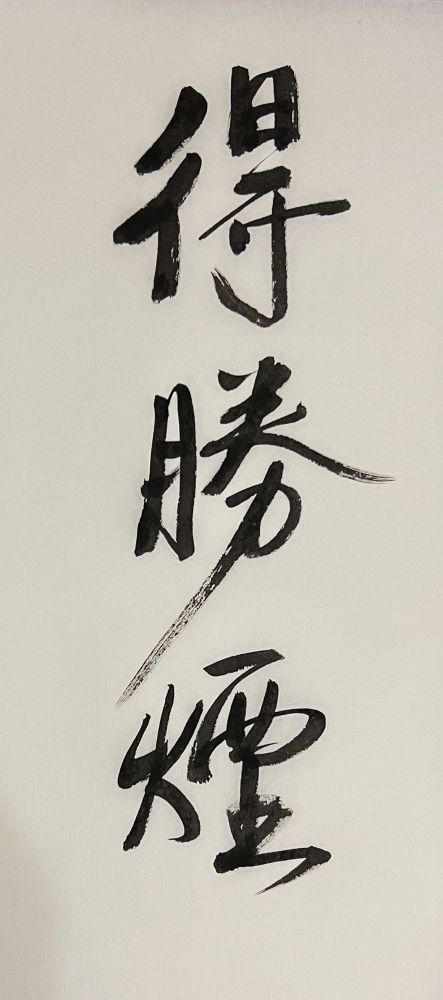 得勝煙